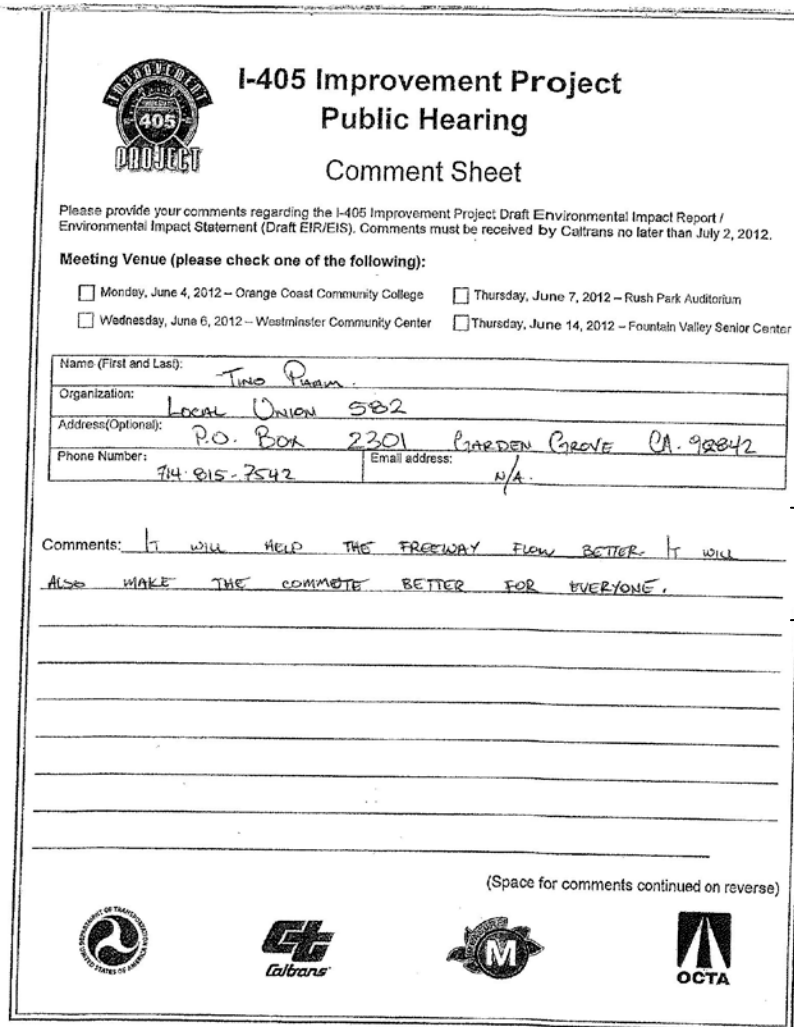 IMPROVEMENT
405
PROJECT
I-405 Improvement Project
Public Hearing
Comment Sheet
Please provide your comments regarding the I-405 Improvement Project Draft Environmental Impact Report /
Environmental Impact Statement (Draft EIR/EIS). Comments must be received by Caltrans no later than July 2, 2012.
Meeting Venue (please check one of the following):
Monday, June 4, 2012 – Orange Coast Community College
Thursday, June 7, 2012 – Rush Park Auditorium
Wednesday, June 6, 2012 – Westminster Community Center
Thursday, June 14, 2012 – Fountain Valley Senior Center
Name (First and Last): Tino Pham.
Organization: LOCAL UNION 582
Address(Optional): P.O. BOX 2301 GARDEN GROVE CA. 92842
Phone Number: 714-815-7542
Email address: N/A.
Comments: IT WILL HELP THE FREEWAY FLOW BETTER. IT WILL
ALSO MAKE THE COMMUTE BETTER FOR EVERYONE.
(Space for comments continued on reverse)
DEPARTMENT OF TRANSPORTATION
UNITED STATES OF AMERICA
Caltrans
MEASURE
M
OCTA